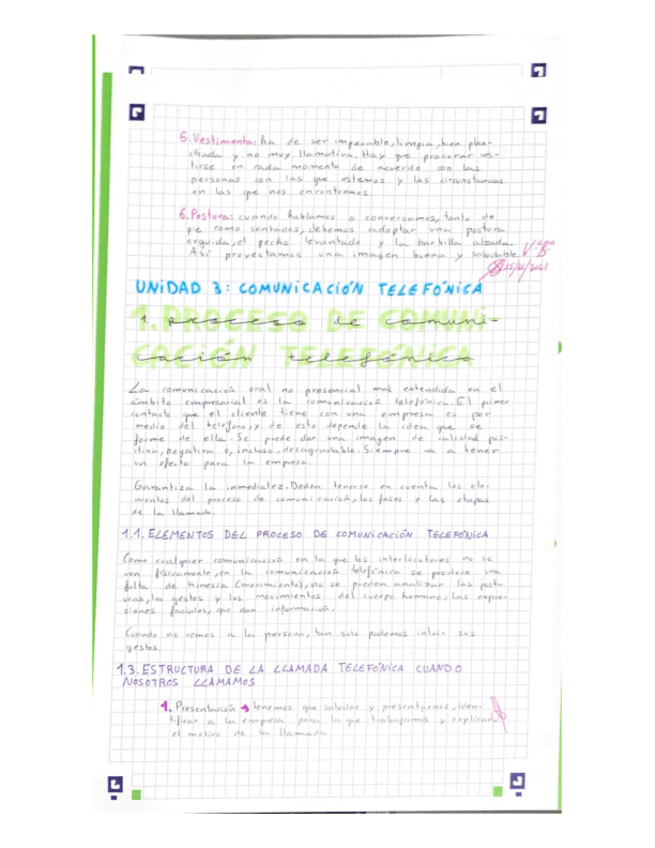 5. Vestimenta: ha de ser impecable, limpia, bien plan-
chada y no muy llamativa. Hay que procurar ves-
tirse en cada momento de acuerdo con las
personas con las que estemos y las circunstancias
en las que nos encontremos.
6. Postura: cuando hablamos o conversamos, tanto de
pie como sentados, debemos adoptar una postura
erguida, el pecho levantado y la barbilla alzada.
Así proyectamos una imagen buena y saludable.
UNIDAD 3: COMUNICACIÓN TELEFÓNICA
1. PROCESO DE COMUNI-
CACIÓN TELEFÓNICA
La comunicación oral no presencial más extendida en el
ámbito empresarial es la comunicación telefónica. El primer
contacto que el cliente tiene con una empresa es por
medio del teléfono, y de esto depende la idea que se
forme de ella. Se puede dar una imagen de calidad pos-
itiva, negativa o, incluso, desagradable. Siempre va a tener
un efecto para la empresa.
Garantiza la inmediatez. Deben tenerse en cuenta los ele-
mentos del proceso de comunicación, las fases y las etapas
de la llamada.
1.1. ELEMENTOS DEL PROCESO DE COMUNICACIÓN TELEFÓNICA
Como cualquier comunicación en la que los interlocutores no se
ven físicamente, en la comunicación telefónica se produce una
falta de kinesia (movimiento), no se pueden analizar las post-
uras, los gestos y los movimientos del cuerpo humano, las expre-
siones faciales, que dan información.
Cuando no vemos a la persona, tan solo podemos intuir sus
gestos.
1.3. ESTRUCTURA DE LA LLAMADA TELEFÓNICA CUANDO
NOSOTROS LLAMAMOS
1. Presentación → tenemos que saludar y presentarnos, iden-
tificar a la empresa para la que trabajamos y explicar
el motivo de la llamada